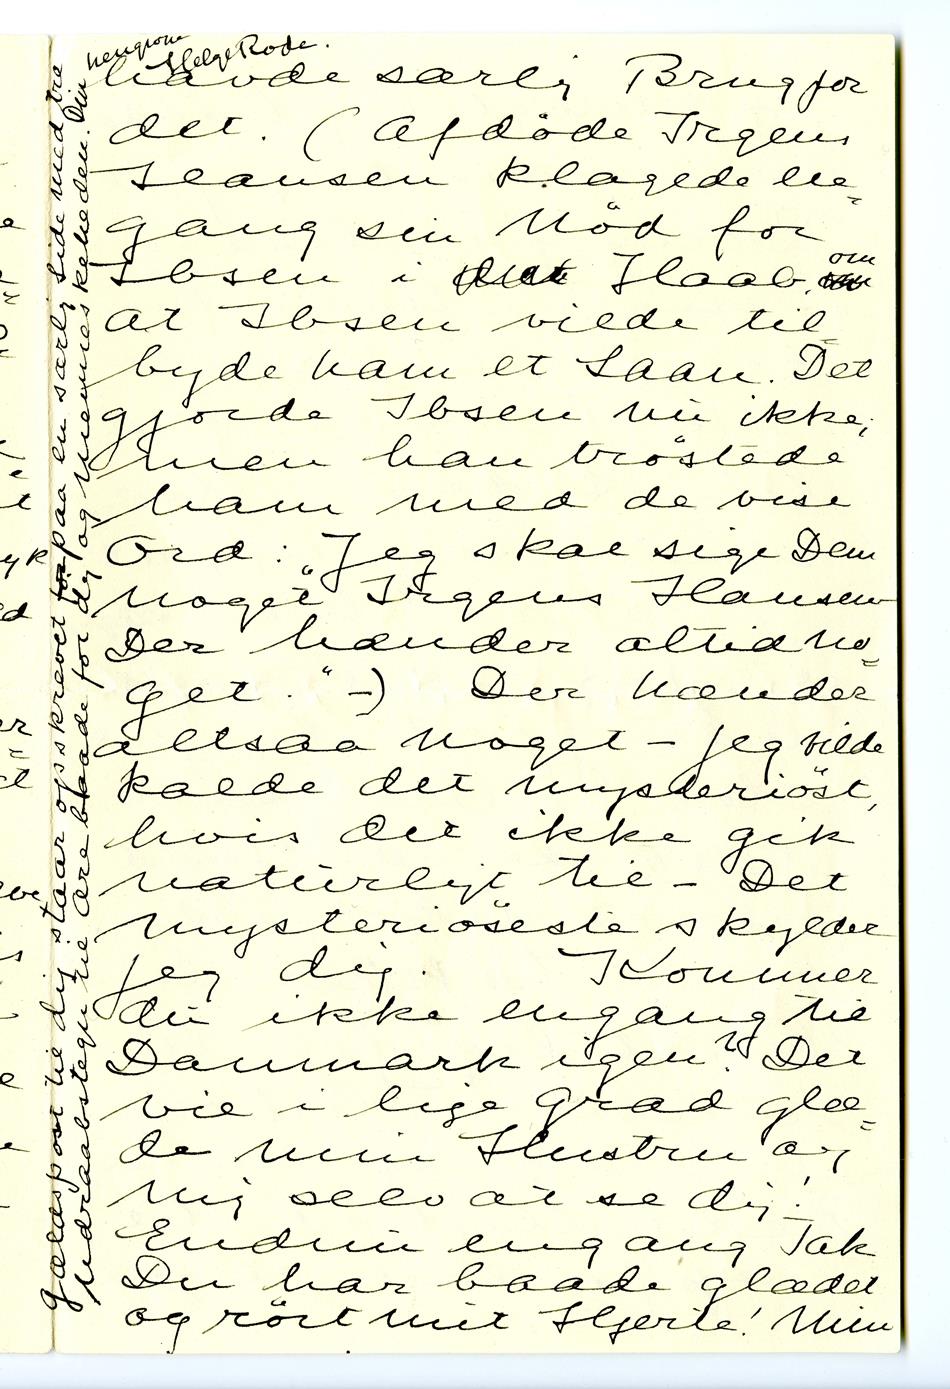 havde særlig Brug for
det. (Afdöde Irgens
Hansen klagede en-
gang sin Nöd for
Ibsen i det Haab, om
at Ibsen vilde til-
byde ham et Laan. Det
gjorde Ibsen nu ikke;
men han tröstede
ham med de vise
Ord: "Jeg skal sige Dem
noget Irgens Hansen
Der hænder altid no-
get." -) Der hænder
altsaa noget - jeg vilde
kalde det mysteriöst,
hvis det ikke gik
naturligt til - Det
mysteriöseste skylder
jeg dig. Kommer
du ikke engang til
Danmark igen? Det
vil i lige Grad glæ-
de min Hustru og
mig selv at se dig!
Endnu engang Tak
Du har baade glædet
og rört mit Hjerte! Min
Gældspost til dig staar opskrevet paa en særlig Side med tre
Udraabstegn til Ære baade for dig og Menneskeheden. Din
hengivne
Helge Rode.